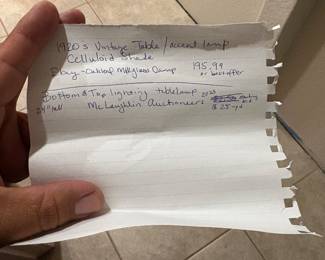 1920s Vintage Table/accent lamp
Celluloid Shade
Ebay - Oakleaf Milkglass Lamp 195.99
or best offer
Bottom & Top lighting table lamp 2023
24" tall McLaughlin Auctioneers
$25-